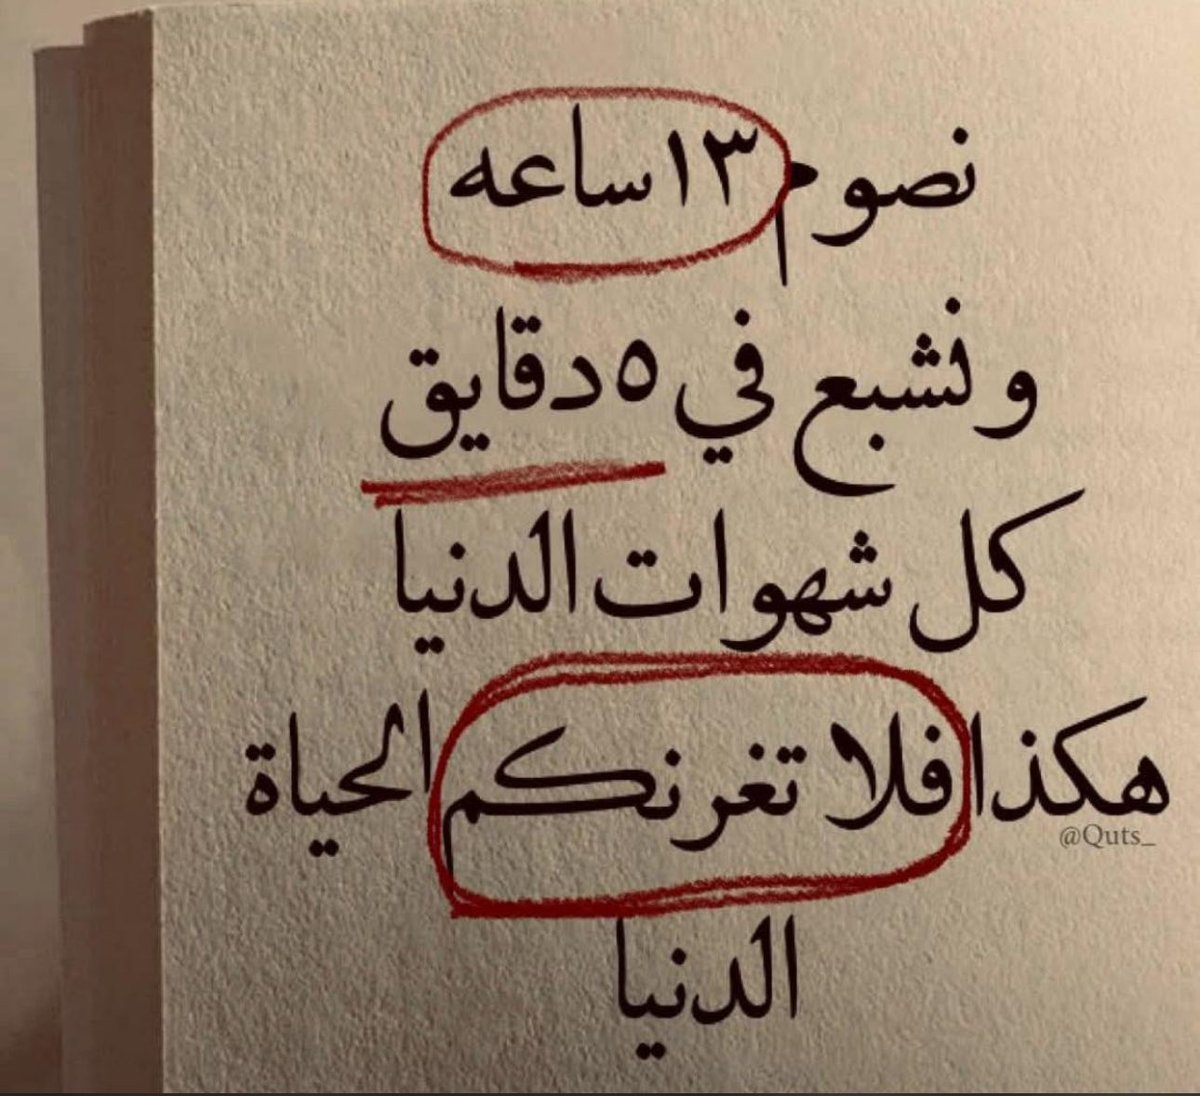 نصوم ١٣ ساعه
ونشبع في ٥ دقايق
كل شهوات الدنيا
هكذا فلا تغرنكم الحياة
@Quts_
الدنيا